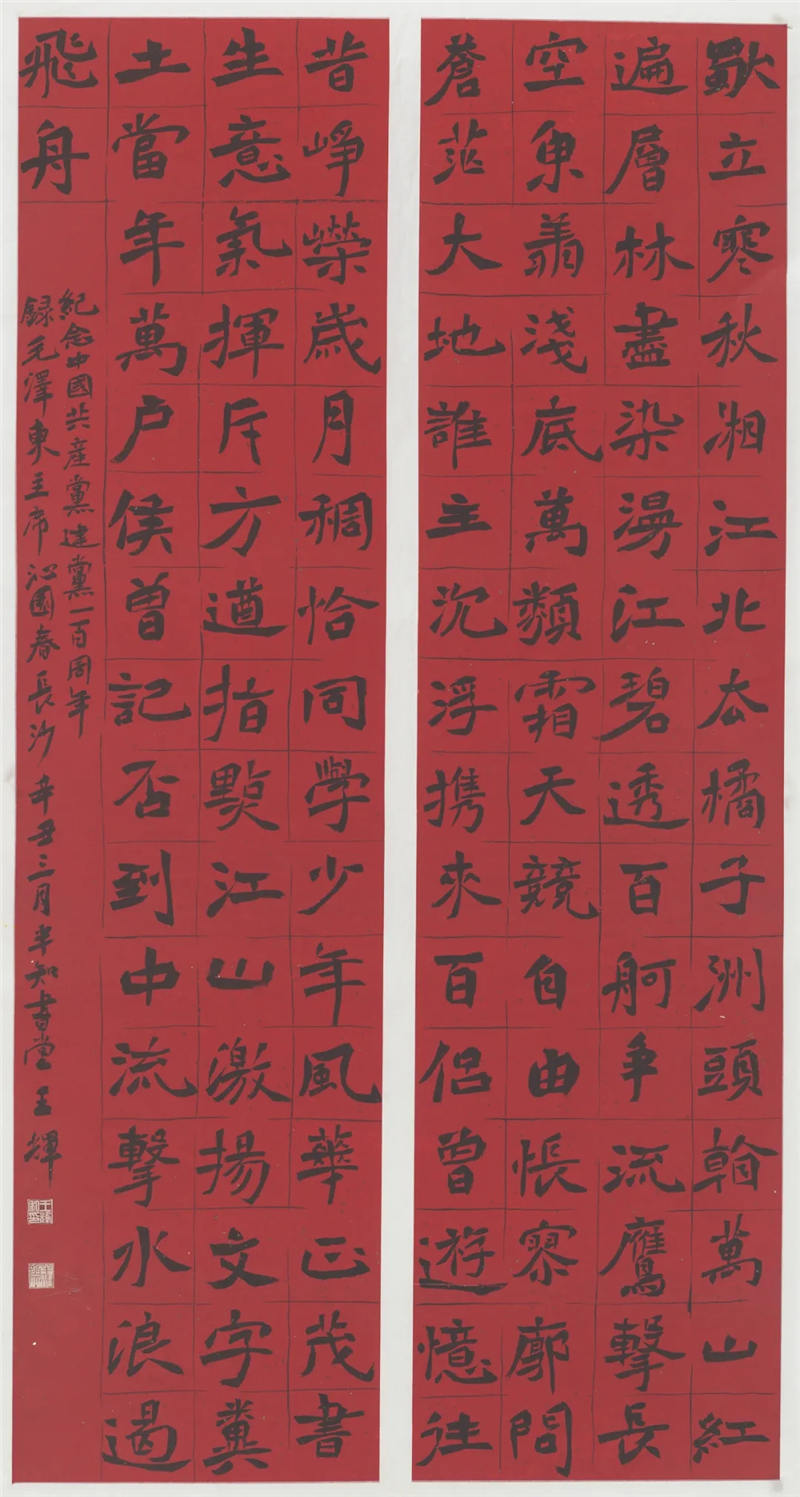 獨立寒秋湘江北去橘子洲頭看萬山紅
遍層林盡染漫江碧透百舸爭流鷹擊長
空魚翔淺底萬類霜天競自由悵寥廓問
蒼茫大地誰主沉浮携來百侶曾遊憶往
昔崢嶸歲月稠恰同學少年風華正茂書
生意氣揮斥方遒指點江山激揚文字糞
土當年萬户侯曾記否到中流擊水浪遏
飛舟
紀念中國共産黨建黨一百周年
録毛澤東主席沁園春長沙辛丑三月半知書堂王輝